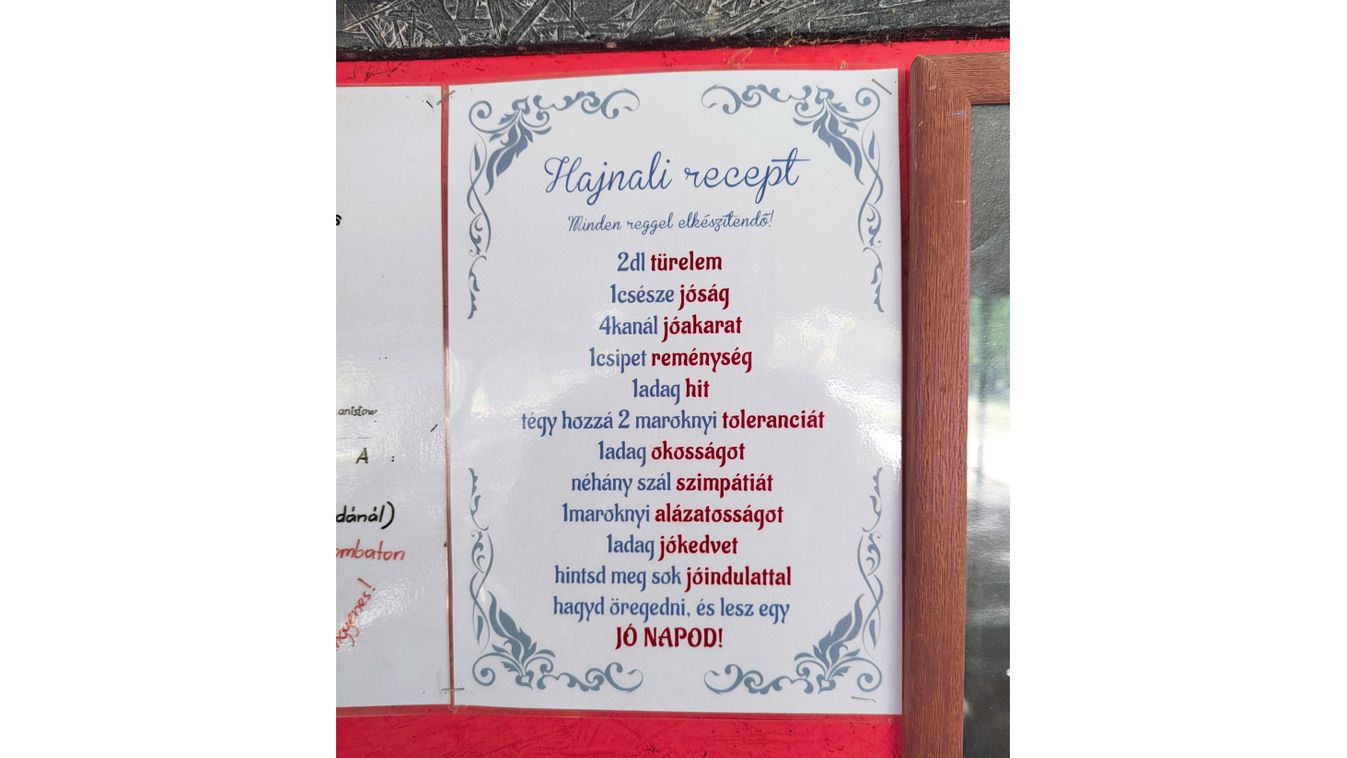 Hajnali recept
Minden reggel elkészítendő!
2dl türelem
1csésze jóság
4kanál jóakarat
1csipet reménység
1adag hit
tégy hozzá 2 maroknyi toleranciát
1adag okosságot
néhány szál szimpátiát
1maroknyi alázatosságot
1adag jókedvet
hintsd meg sok jóindulattal
hagyd öregedni, és lesz egy
JÓ NAPOD!
s
anistow
A :
dánál)
ombaton